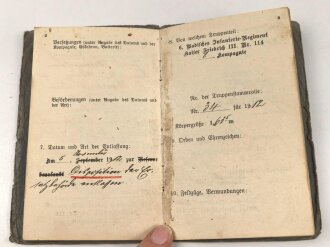 Versetzungen (unter Angabe des Datums und der
Kompagnie, Eskadron, Batterie):
Beförderungen (unter Angabe des Datums und
der Art):
7. Datum und Art der Entlassung:
November
Am 5. September 1912 zur
Disposition der Er-
satzbehörde entlassen
8. Von welchem Truppenteil:
6. Badisches Infanterie-Regiment
Kaiser Friedrich III. Nr. 114
8 Kompagnie
Nr. der Truppenstammrolle:
Nr. 34 für 1912
Körpergröße 1
9. Orden und Ehrenzeichen:
10. Feldzüge, Verwundungen: